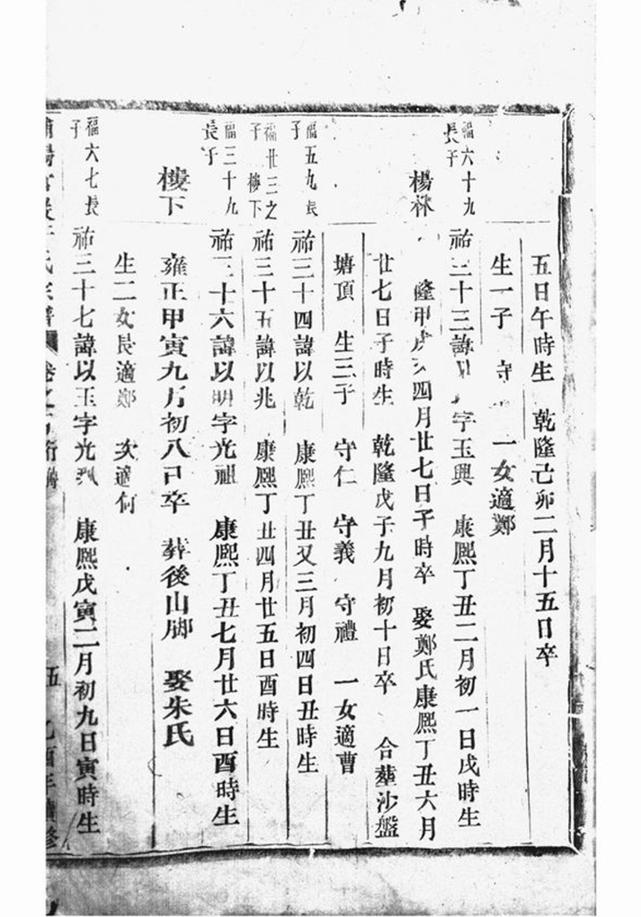 五日午時生 乾隆己卯二月十五日卒
生一子 守 一女適鄭
福六十九長子
祐三十三諱以 字玉興 康熙丁丑二月初一日戌時生
楊林 隆甲戌 四月廿七日子時卒 娶鄭氏康熙丁丑六月
廿七日子時生 乾隆戊子九月初十日卒 合葬沙盤
塘頂 生三子 守仁 守義 守禮 一女適曹
福五九長子
祐三十四諱以乾 康熙丁丑又三月初四日丑時生
福廿三之子 樓下
祐三十五諱以兆 康熙丁丑四月廿五日酉時生
福三十九長子
祐三十六諱以明字光祖 康熙丁丑七月廿六日酉時生
樓下 雍正甲寅九月初八日卒 葬後山脚 娶朱氏
生二女長適鄭 次適何
福六七長子
祐三十七諱以玉字光 康熙戊寅二月初九日寅時生
氏宗譜 卷之 伍 乙酉年續修